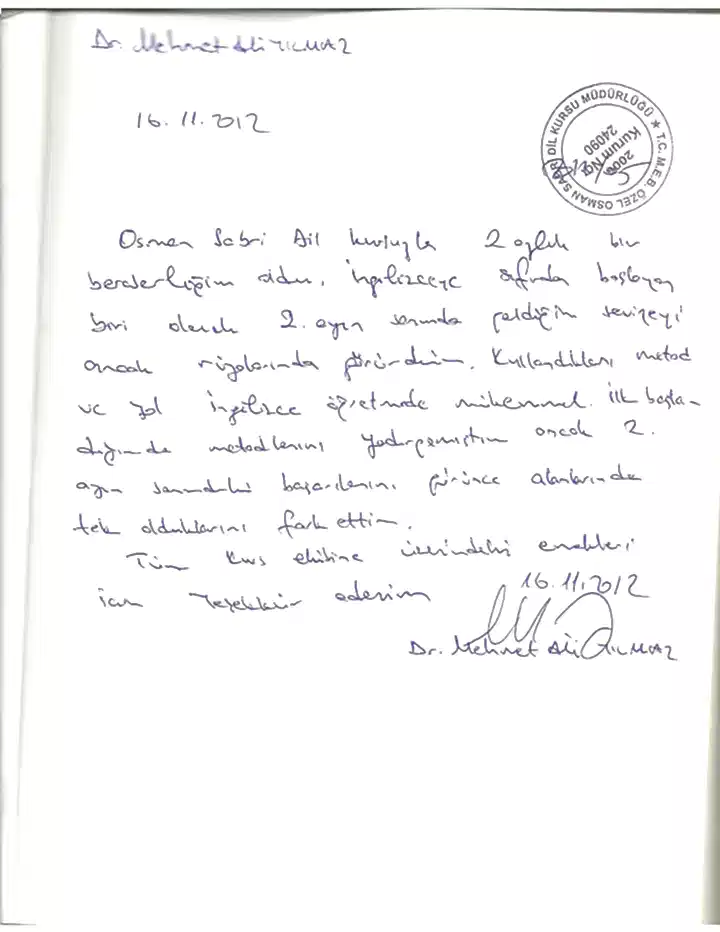 Dr. Mehmet Ali YILMAZ
16.11.2012
T.C. M.E.B. ÖZEL OSMAN SABRİ DİL KURSU MÜDÜRLÜĞÜ ★
Kurum No
24090
2006
Osman Sabri Dil kursuyla 2 aylık bir
beraberliğim oldu. İngilizceye sıfırdan başlayan
biri olarak 2. ayın sonunda geldiğim seviyeyi
ancak rüyalarımda görürdüm. Kullandıkları metod
ve yol İngilizce öğretmede mükemmel. İlk başla-
dığımda metodlarını yadırgamıştım ancak 2.
ayın sonundaki başarılarını görünce alanlarında
tek olduklarını fark ettim.
Tüm kurs ekibine üzerimdeki emekleri
için teşekkür ederim
16.11.2012
Dr. Mehmet Ali YILMAZ